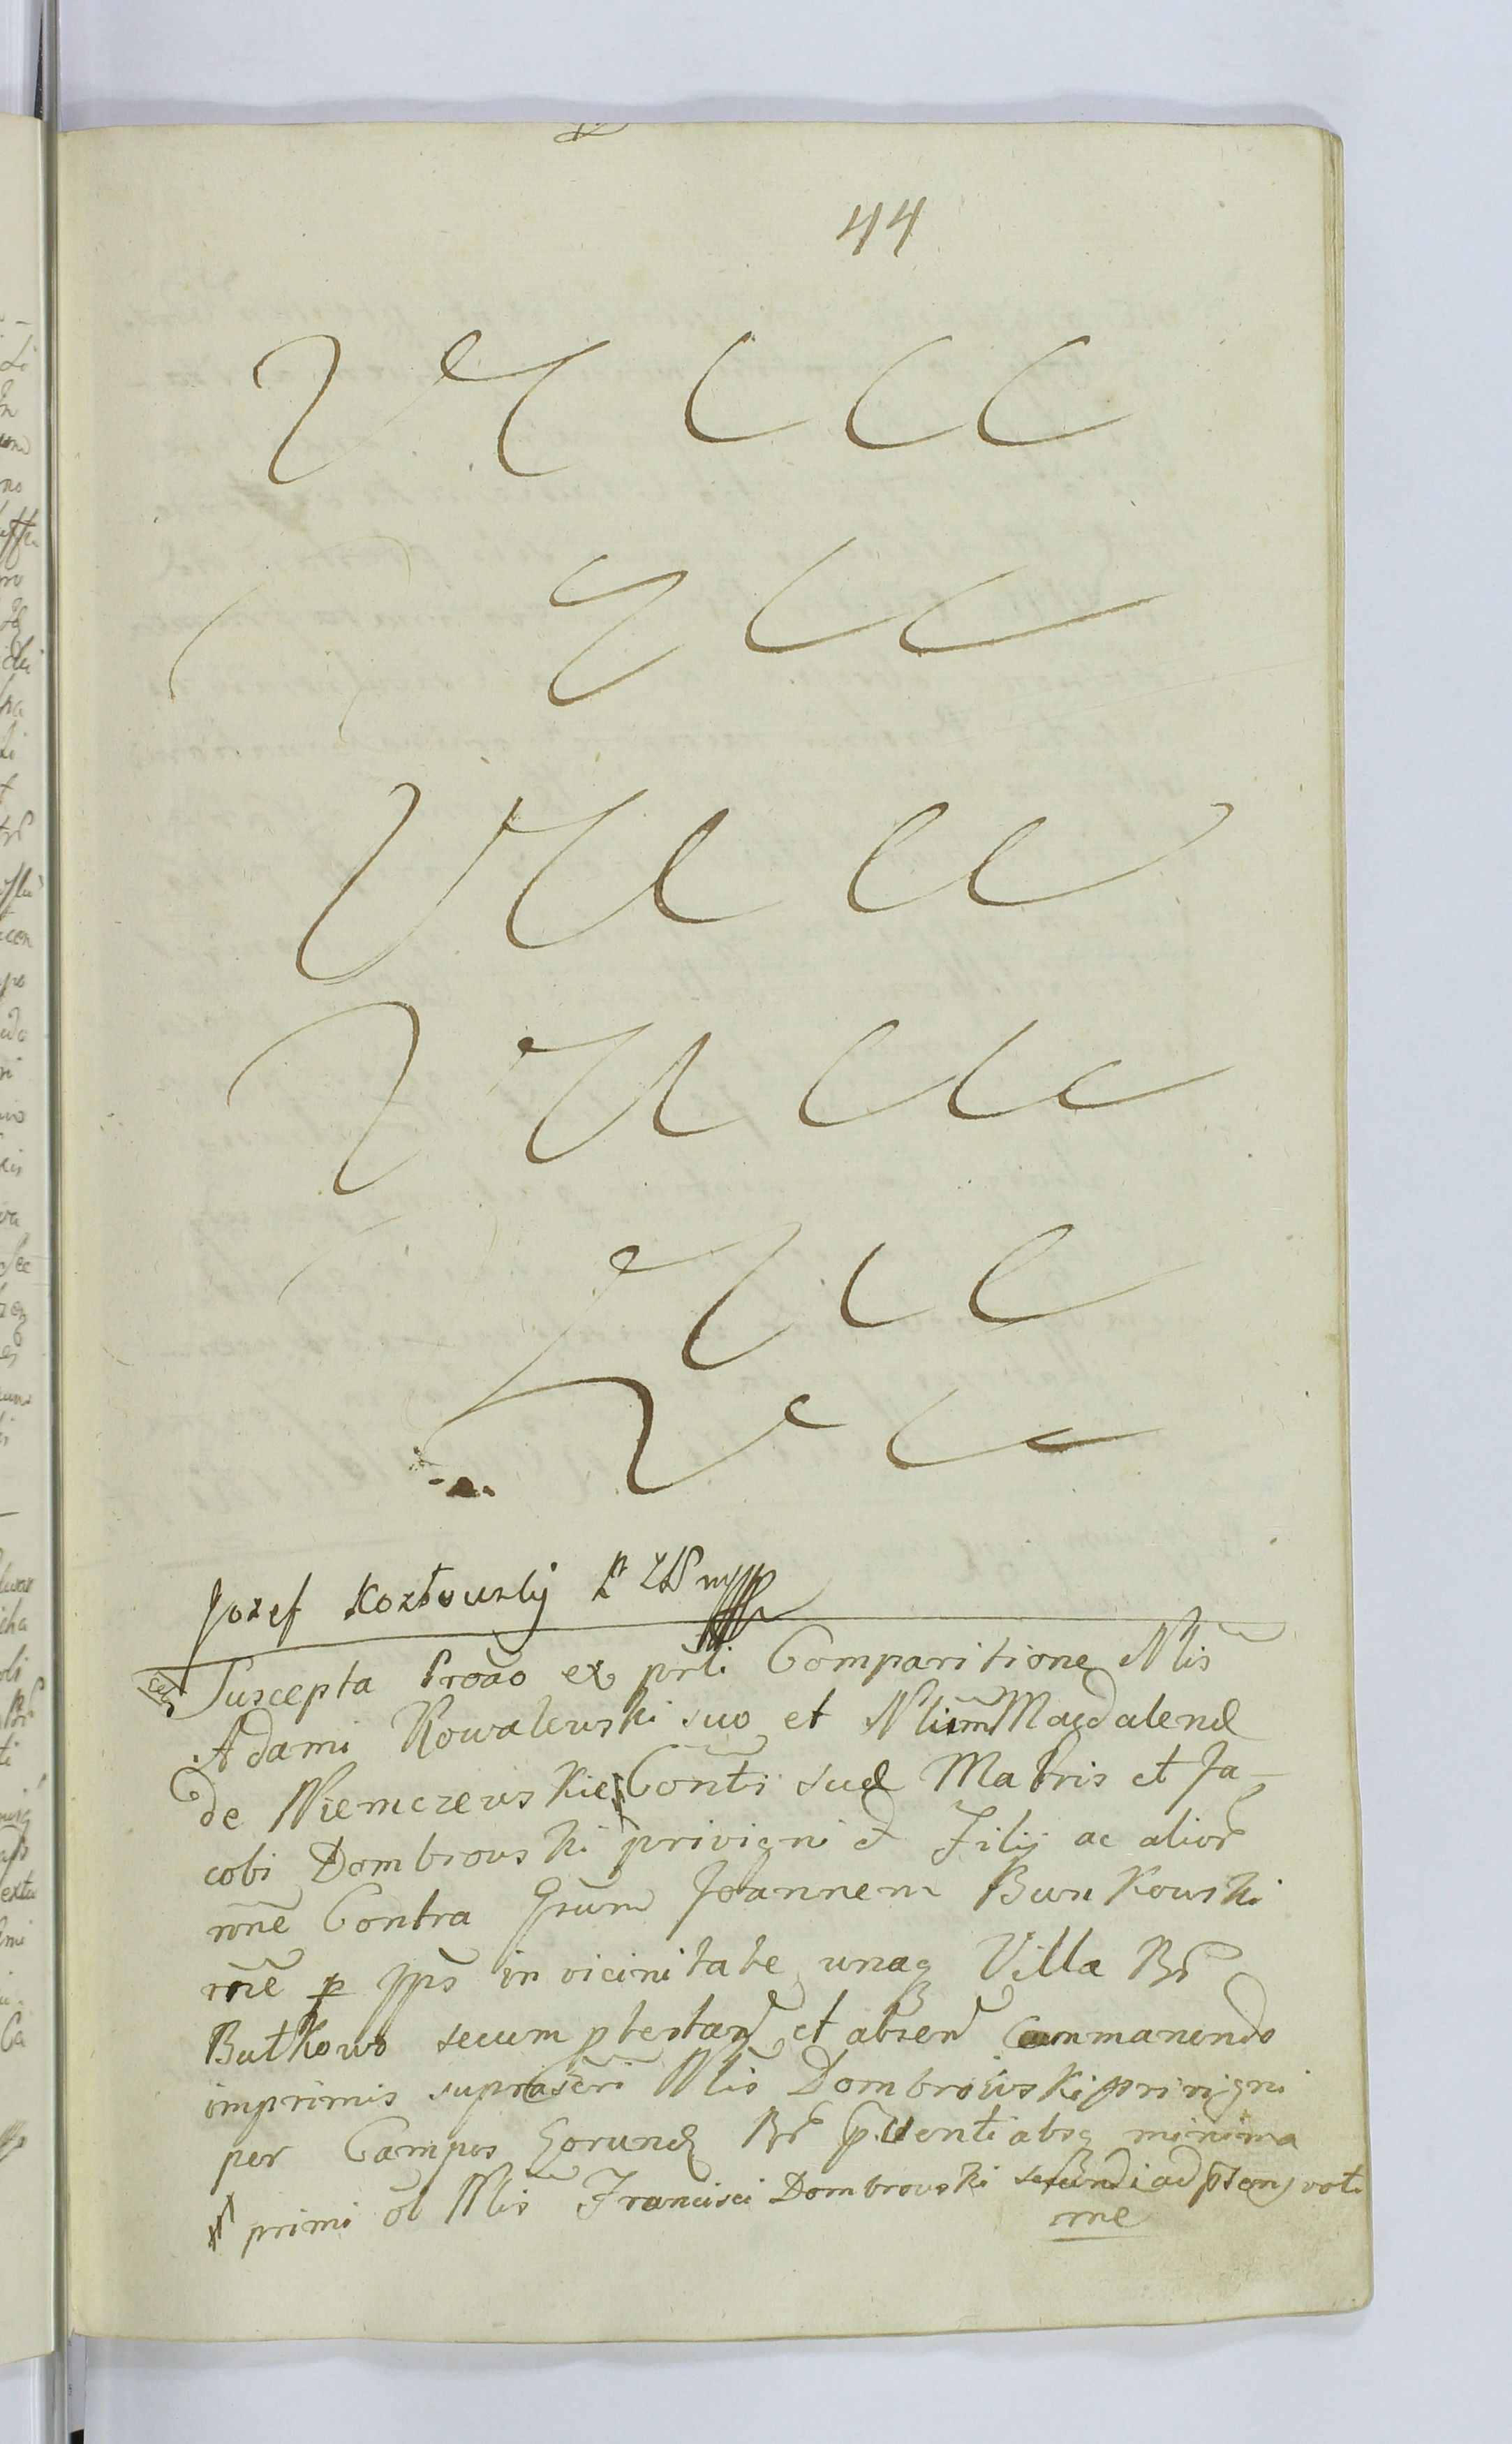 44
Jozef Kozłowsky
Suscepta Proão ex prŝti Comparitione Nlis
Adami Kowalewski suo et Nlium Magdalenę
de Niemczewskie Conti suę Matris et Ja-
cobi Dombrowski privigni et Filij ac alior
rõne Contra Gsum Joannem Bunkowski
rõne p̱ jps in vicinitate unaq Villa Br̃
Bułkowo secum et absen commanendo
imprimis suprascri Nlis Dombrowski privigni
per Campos Eorund Br̃ absq minima
primi ol Nlis Francisci Dombrowski secundi ad voti
rõne